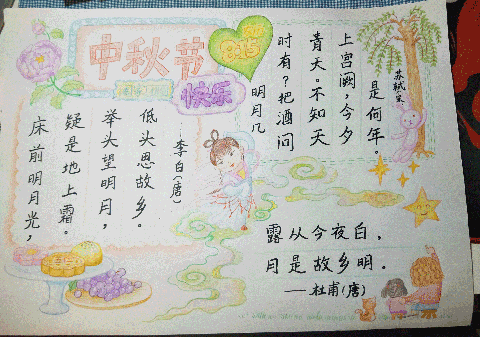 中秋节
快乐
床前明月光，
疑是地上霜。
举头望明月，
低头思故乡。
——李白(唐)
明月几
时有？把酒问
青天。不知天
上宫阙，今夕
是何年。
苏轼宋
露从今夜白，
月是故乡明。
——杜甫(唐)